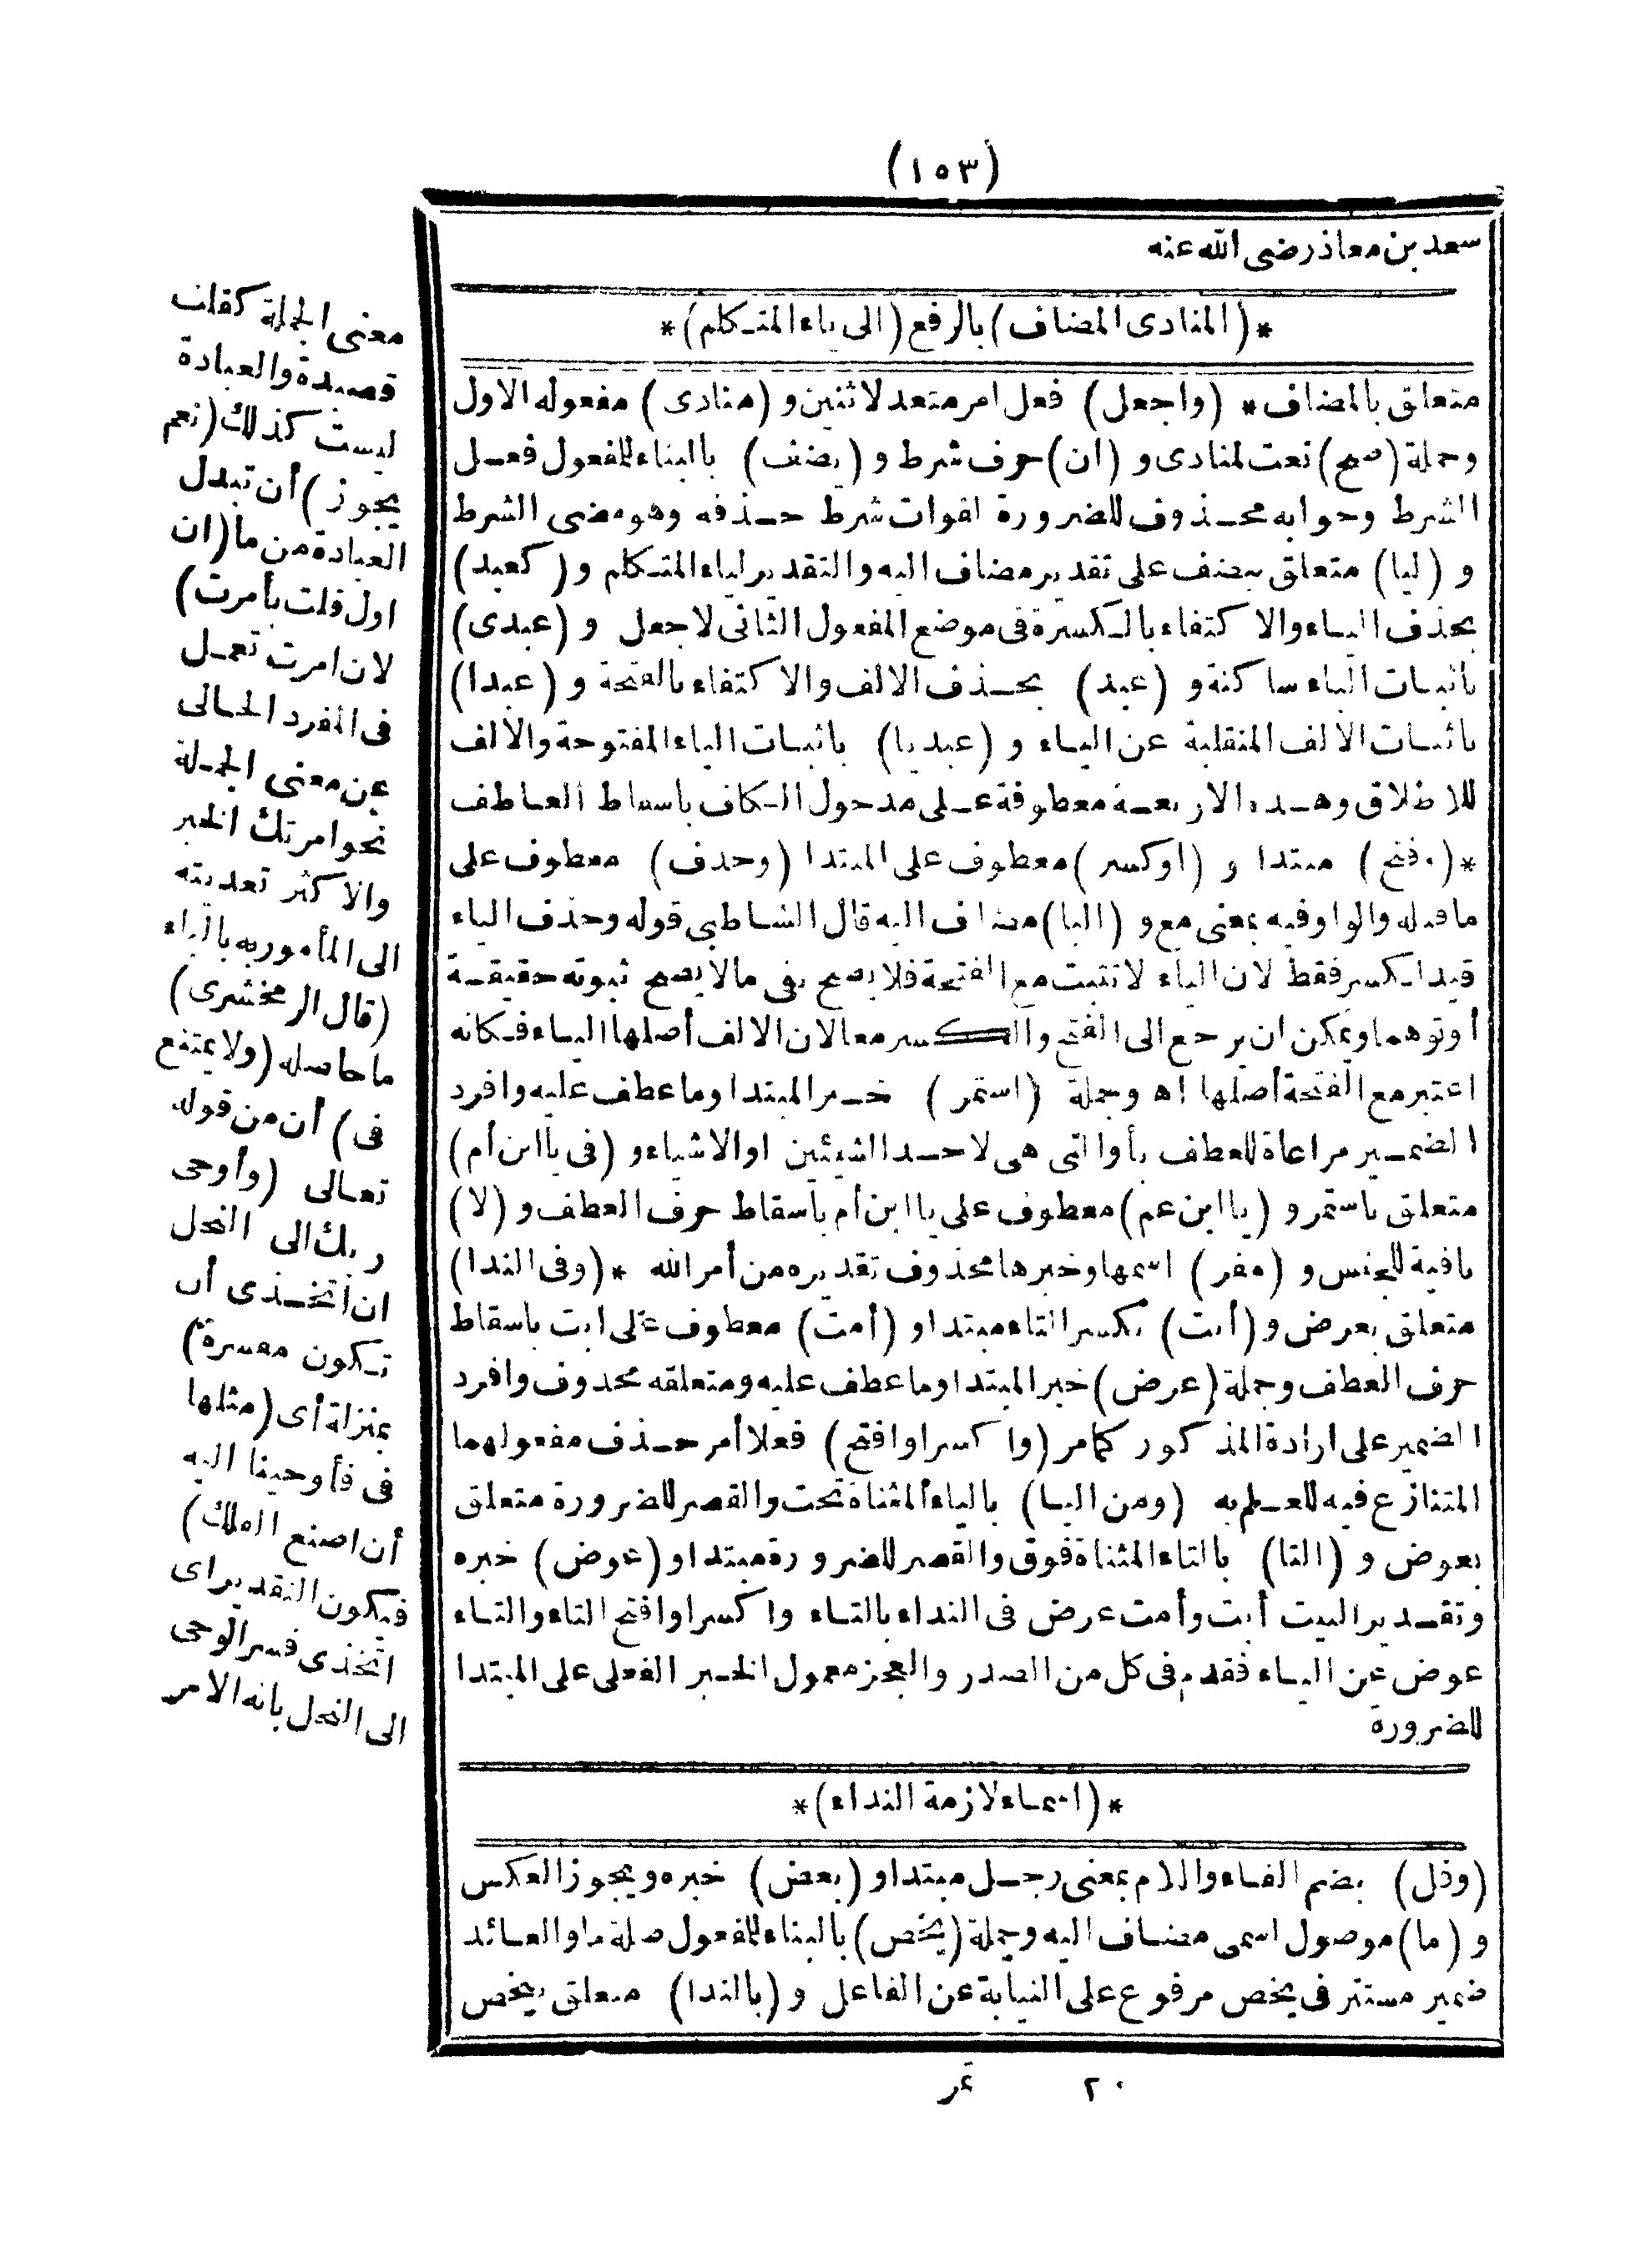 (١٥٣)
سعد بن معاذ رضى الله عنه
*(المنادى المضاف) بالرفع (الى ياء المتكلم)*
متعلق بالمضاف * (واجعل) فعل امر متعد لاثنين و (منادى) مفعوله الاول
وجملة (صح) نعت لمنادى و (ان) حرف شرط و (يضف) بالبناء للمفعول فعل
الشرط وجوابه محذوف للضرورة لفوات شرط حذفه وهو مضى الشرط
و (ليا) متعلق بيضف على تقدير مضاف اليه والتقدير لياء المتكلم و (كعبد)
بحذف الياء والاكتفاء بالكسرة فى موضع المفعول الثانى لاجعل و (عبدى)
باثبات الياء ساكنة و (عبد) بحذف الالف والاكتفاء بالفتحة و (عبدا)
باثبات الالف المنقلبة عن الياء و (عبديا) باثبات الياء المفتوحة والالف
للاطلاق وهذه الاربعة معطوفة على مدخول الكاف باسقاط العاطف
*(وفتح) مبتدا و (اوكسر) معطوف على المبتدا (وحذف) معطوف على
ما قبله والواو فيه بمعنى مع و (اليا) مضاف اليه قال الشاطبى قوله وحذف الياء
قيد لكسر فقط لان الياء لا تثبت مع الفتحة فلا يصح نفى ما لا يصح ثبوته حقيقة
أو توهما ويمكن ان يرجع الى الفتح والكسر معا لان الالف أصلها الياء فكانه
اعتبر مع الفتحة أصلها اه وجملة (استمر) خبر المبتدا وما عطف عليه وافرد
الضمير مراعاة للعطف بأو التى هى لاحد الشيئين او الاشياء و (فى يا ابن أم)
متعلق باستمر و (يا ابن عم) معطوف على يا ابن أم باسقاط حرف العطف و (لا)
نافية للجنس و (مفر) اسمها وخبرها محذوف تقديره من أمر الله *(وفى الندا)
متعلق بعرض و (أبت) بكسر التاء مبتدا و (أمت) معطوف على ابت باسقاط
حرف العطف وجملة (عرض) خبر المبتدا وما عطف عليه ومتعلقه محذوف وافرد
الضمير على ارادة المذكور كما مر (واكسر او افتح) فعلا أمر حذف مفعولهما
المتنازع فيه للعلم به (ومن اليا) بالياء المثناة تحت والقصر للضرورة متعلق
بعوض و (التا) بالتاء المثناة فوق والقصر للضرورة مبتدا و (عوض) خبره
وتقدير البيت أبت وأمت عرض فى النداء بالتاء واكسر او افتح التاء والتاء
عوض عن الياء فقدم فى كل من الصدر والعجز معمول الخبر الفعلى على المبتدا
للضرورة
*(اسماء لازمة النداء)*
(وفل) بضم الفاء واللام بمعنى رجل مبتدا و (بعض) خبره ويجوز العكس
و (ما) موصول اسمى مضاف اليه وجملة (يخص) بالبناء للمفعول صلة ما والعائد
ضمير مستتر فى يخص مرفوع على النيابة عن الفاعل و (بالندا) متعلق بيخص
٢٠ تمر
معنى الجملة كقلت
قصيدة والعبادة
ليست كذلك (نعم
يجوز) أن تبدل
العبادة من ما (ان
اول قلت بأمرت)
لان امرت تعمل
فى المفرد الخالى
عن معنى الجملة
نحو امرتك الخير
والاكثر تعديته
الى المأمور به بالباء
(قال الزمخشرى)
ما حاصله (ولا يمتنع
فى) أن من قوله
تعالى (وأوحى
ربك الى النحل
ان اتخذى أن
تكون مفسرة)
بمنزلة أى (مثلها
فى فأوحينا اليه
أن اصنع الفلك)
فيكون التقدير اى
اتخذى فسر الوحى
الى النحل بانه الامر